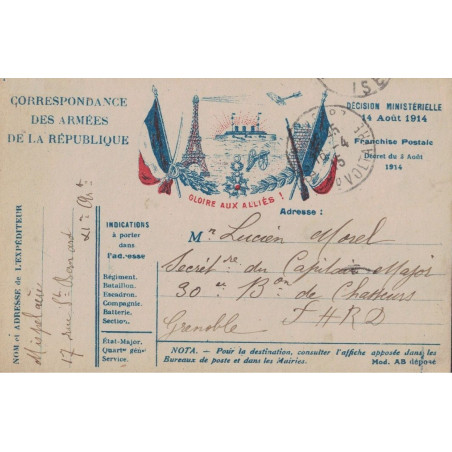 CORRESPONDANCE
DES ARMÉES
DE LA RÉPUBLIQUE
GLOIRE AUX ALLIÉS !
DÉCISION MINISTÉRIELLE
14 Août 1914
Franchise Postale
Décret du 3 Août
1914
Adresse :
Mr Lucien Morel
Secrétre du Capitaine Major
30 e Bon de Chasseurs
Grenoble
INDICATIONS
à porter
dans
l'adresse
Régiment.
Bataillon.
Escadron.
Compagnie.
Batterie.
Section.
État-Major.
Quartr génl
Service.
NOM et ADRESSE de L'EXPÉDITEUR
17 rue St
NOTA. — Pour la destination, consulter l'affiche apposée dans les
Bureaux de poste et dans les Mairies.
Mod. AB déposé